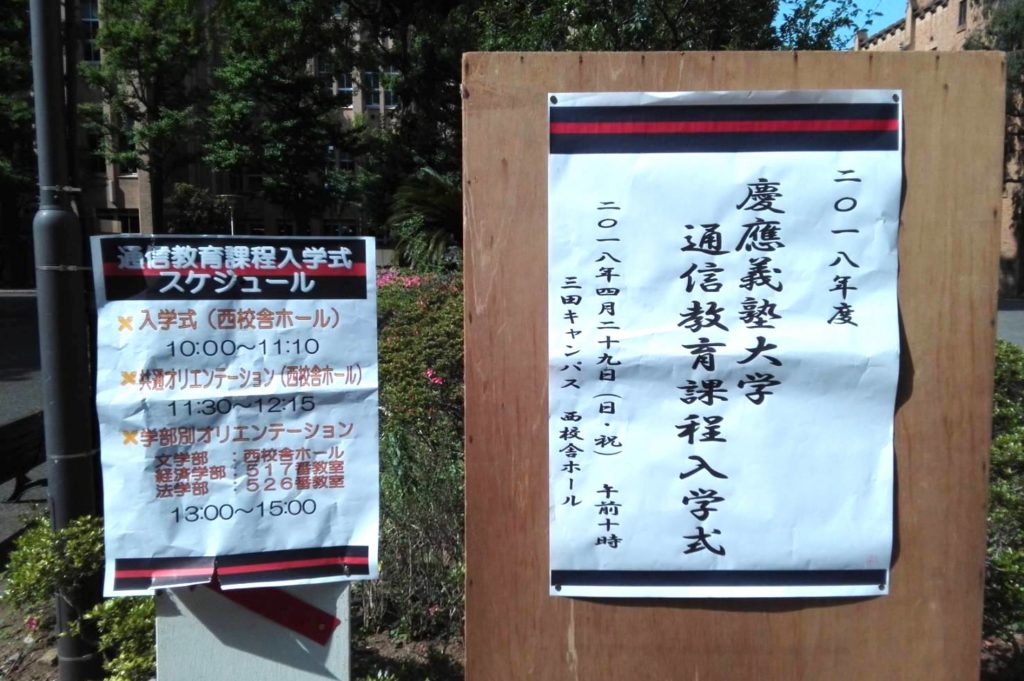 通信教育課程入学式
スケジュール
入学式（西校舎ホール）
10:00～11:10
共通オリエンテーション（西校舎ホール）
11:30～12:15
学部別オリエンテーション
文学部　：西校舎ホール
経済学部：517番教室
法学部　：526番教室
13:00～15:00
二〇一八年度
慶應義塾大学
通信教育課程入学式
二〇一八年四月二十九日（日・祝）　午前十時
三田キャンパス　西校舎ホール